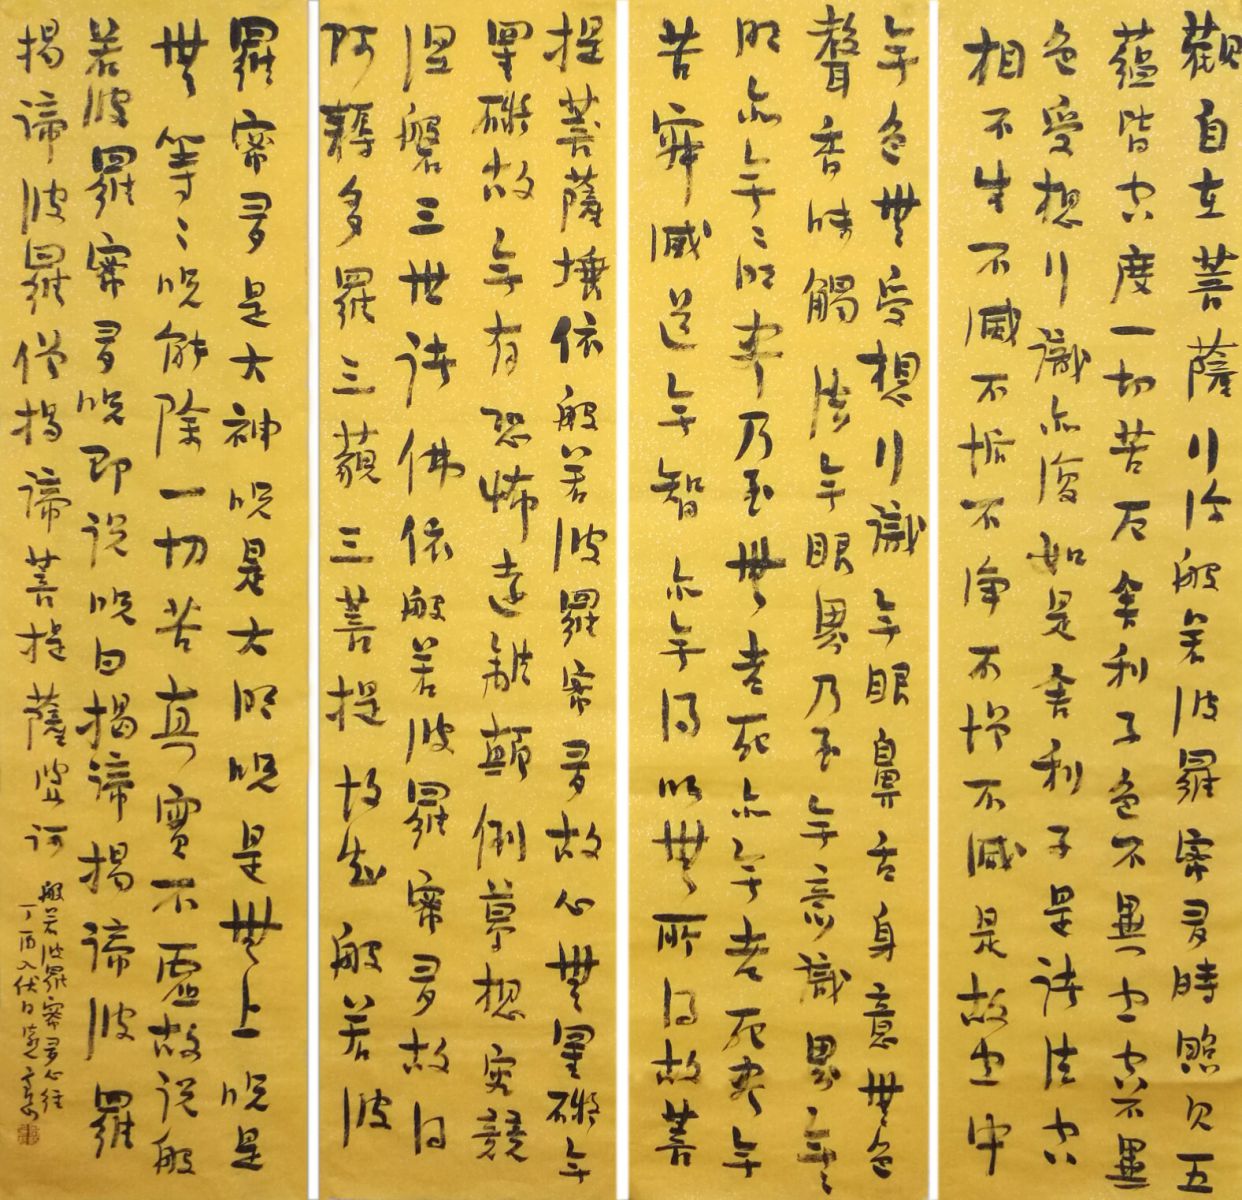 觀自在菩薩行深般若波羅蜜多時照見五
蘊皆空度一切苦厄舍利子色不異空空不異
色受想行識亦復如是舍利子是諸法空
相不生不滅不垢不淨不增不減是故空中
無色無受想行識無眼耳鼻舌身意無色
聲香味觸法無眼界乃至無意識界無
明亦無無明盡乃至無老死亦無老死盡無
苦集滅道無智亦無得以無所得故菩
提菩薩埵依般若波羅蜜多故心無罣礙無
罣礙故無有恐怖遠離顛倒夢想究竟
涅槃三世諸佛依般若波羅蜜多故得
阿耨多羅三藐三菩提故知般若波
羅蜜多是大神咒是大明咒是無上咒是
無等等咒能除一切苦真實不虛故說般
若波羅蜜多咒即說咒曰揭諦揭諦波羅
揭諦波羅僧揭諦菩提薩婆訶
般若波羅蜜多心經
丁酉入伏日